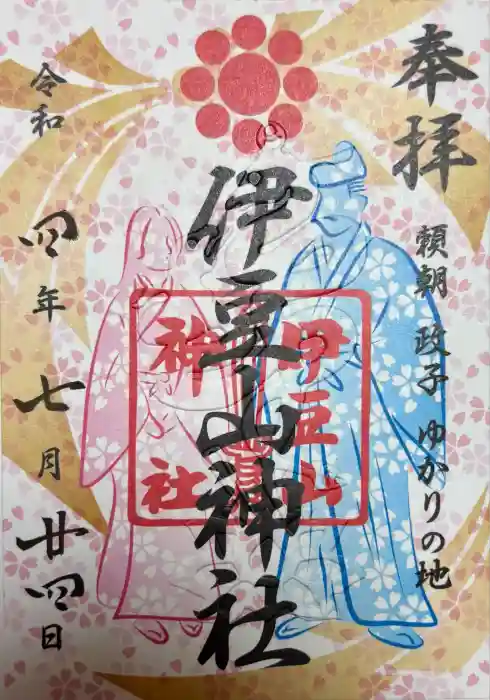 奉拝
頼朝 政子 ゆかりの地
伊豆山神社
伊豆山
神社
令和
四年七月廿四日